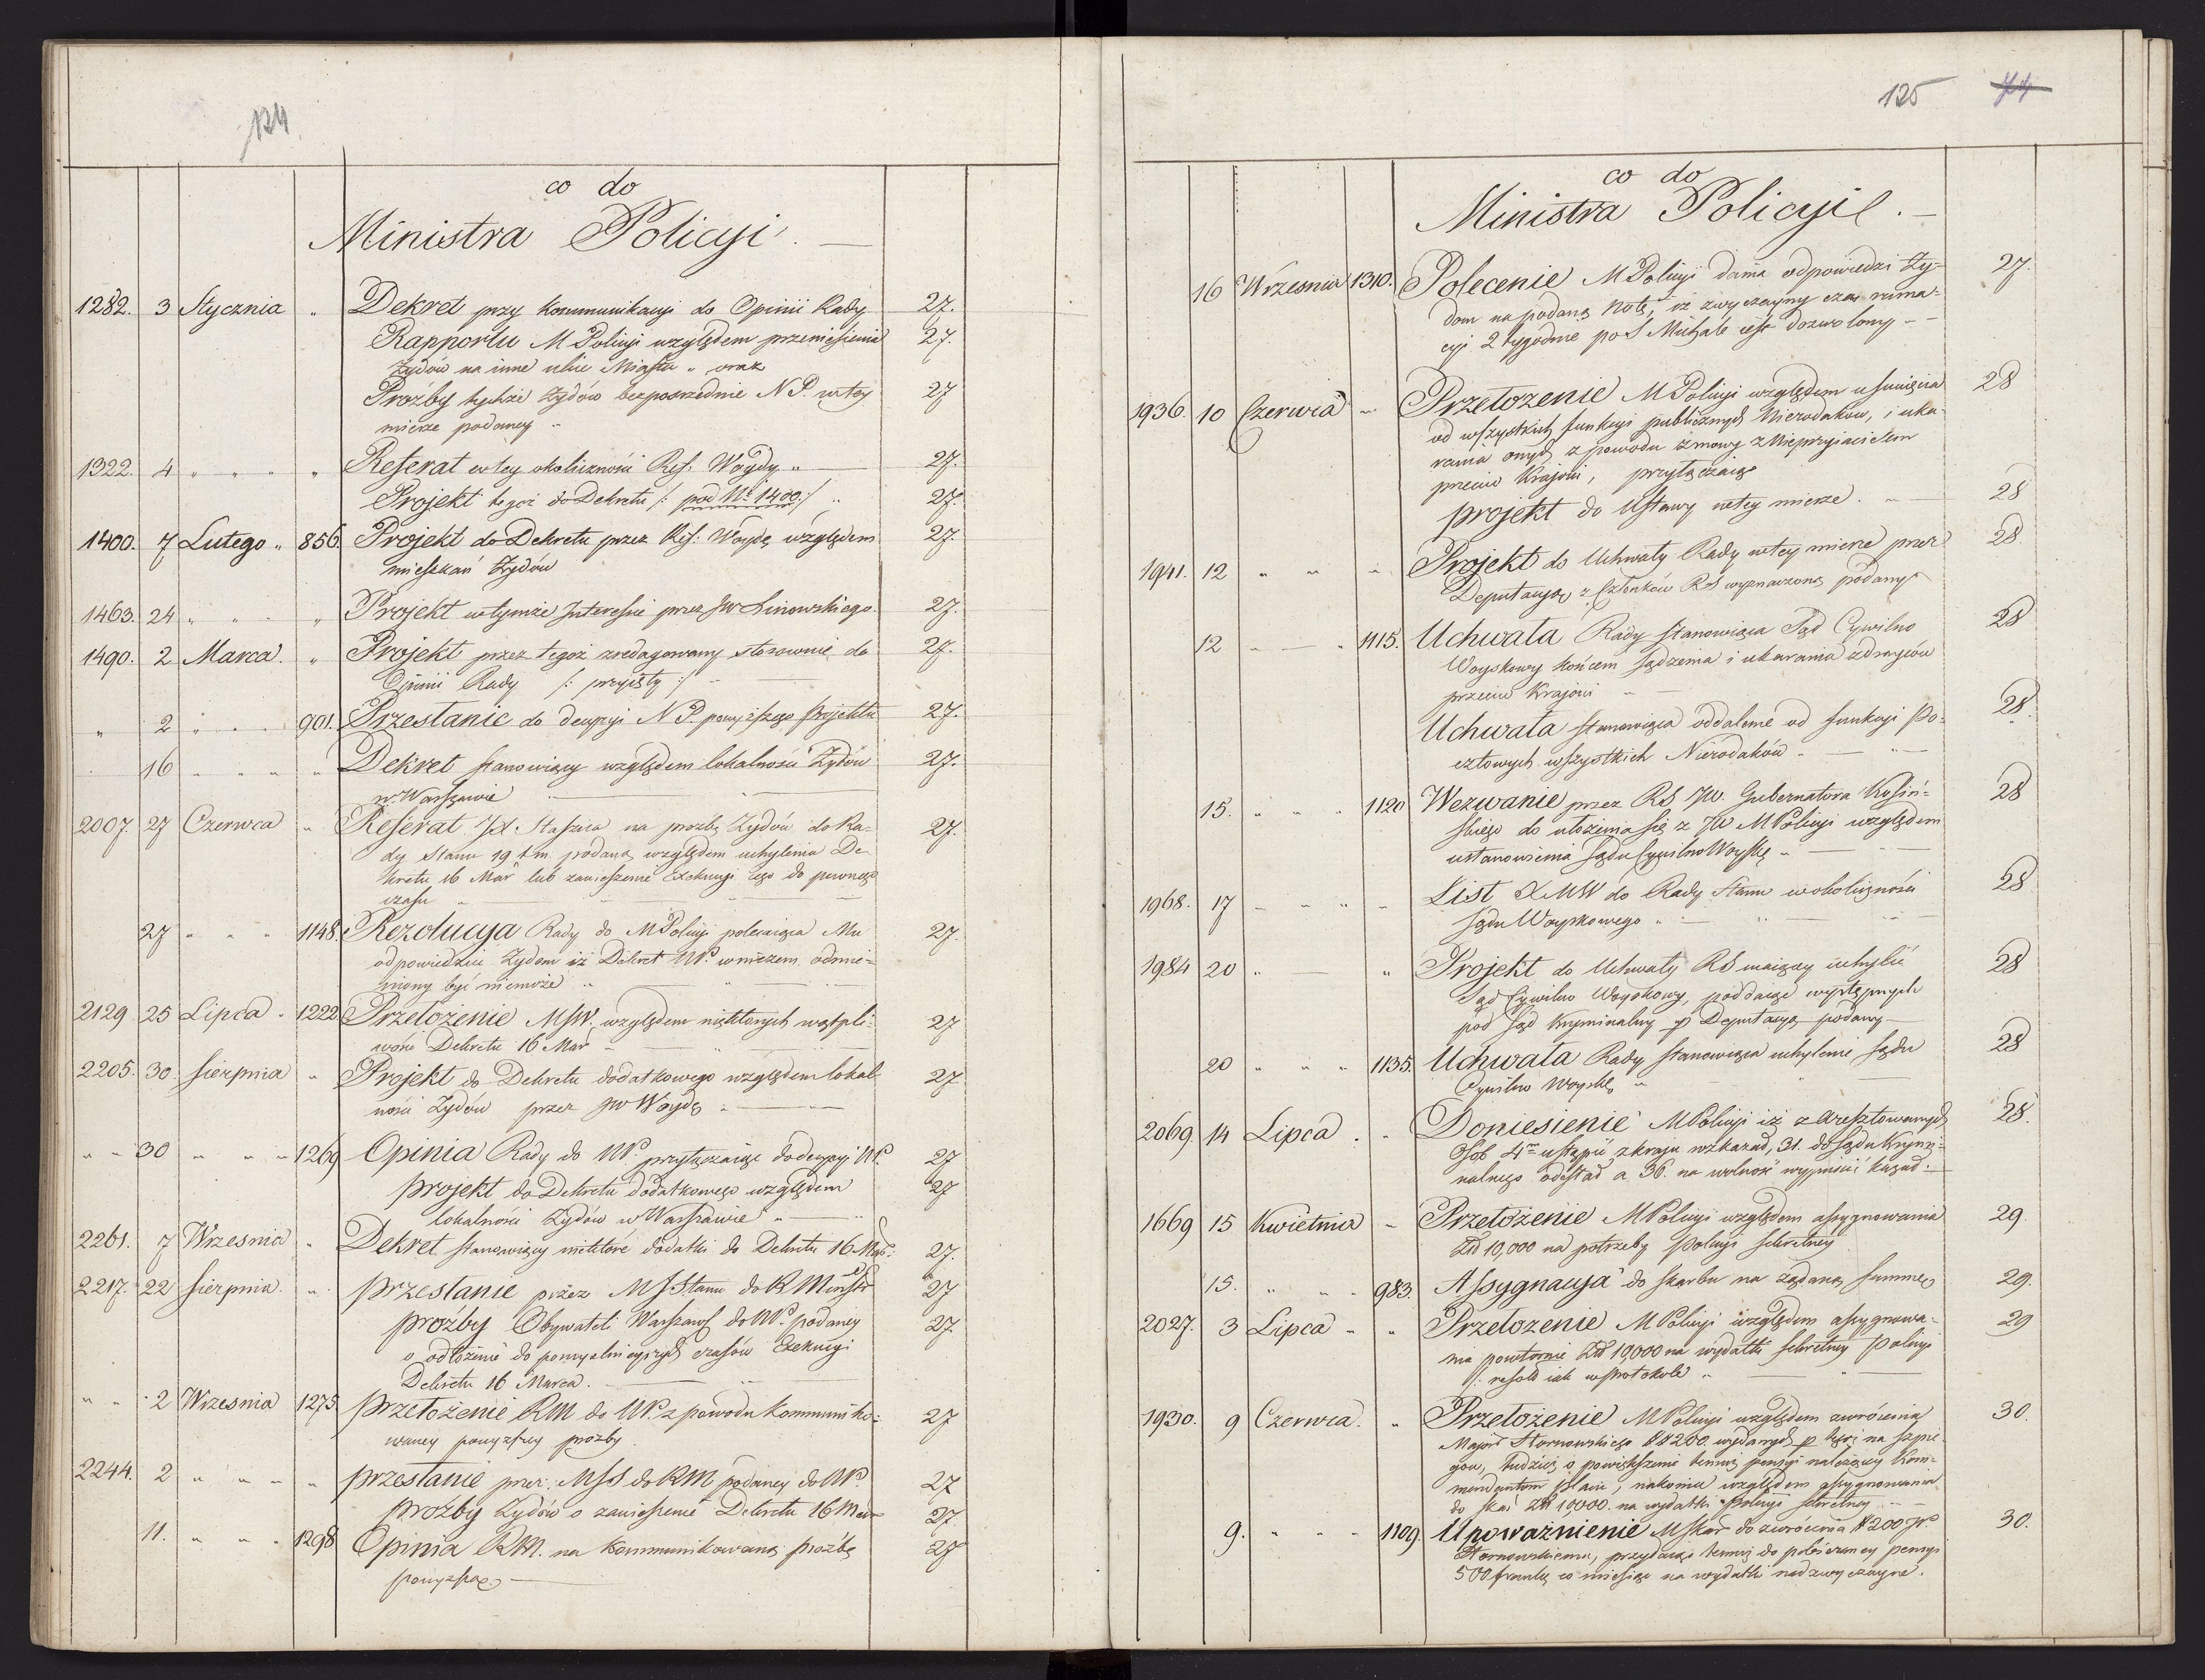 124
co do
Ministra Policyi. —
1282. 3 Stycznia " Dekret przy kommunikacyi do Opinii Rady 27.
Rapportu M Policyi względem przeniesienia 27.
Żydów na inne ulice Miasta " oraz
Proźby tychże Żydów bezposrzednie N.P. w tey 27
mierze podaney "
1322. 4 " " " " Referat w tey okoliczności Ref: Woydy " 27.
Projekt tegoż do Dekretu /: pod No 1400 :/ " 27.
1400. 7 Lutego " 856. Projekt do Dekretu przez Ref: Woydę względem 27.
mieszkań Żydów
1463. 24 " " " " Projekt w tymże Interessie przez JW Linowskiego 27.
1490. 2 Marca. " Projekt przez tegoż zredagowany stosownie do 27.
Opinii Rady /: przyięty :/ "
" 2 " " " 901. Przesłanie do decyzyi N.P. powyższego projektu 27.
16 " " " " Dekret stanowiący względem lokalności Żydów 27.
w Warszawie
2007. 27 Czerwca " Referat JX. Staszica na prozbę Żydów do Ra- 27.
dy Stanu 19 t.m. podaną względem uchylenia De-
kretu 16 Mar lub zawieszenie Exekucyi iego do pewnego
czasu "
27 " " " 1148. Rezolucya Rady do M Policyi polecaiąca Mu 27.
odpowiedzieć Żydom iż Dekret NP. w niczem odmie-
niony być niemoże "
2129 25 Lipca " 1222 Przełożenie MSW. względem niektórych wątpli- 27
wości Dekretu 16 Mar
2205. 30 Sierpnia " Projekt do Dekretu dodatkowego względem lokal- 27
ności Żydów przez JW Woydę "
" " 30 " " " 1269 Opinia Rady do NP. przyłączaiąc do decyzyi NP. 27
projekt do Dekretu dodatkowego względem 27
lokalności Żydów w Warszawie "
2261. 7 Wrzesnia " Dekret stanowiący niektóre dodatki do Dekretu 16 Mar: 27.
2217. 22 Sierpnia. " przesłanie przez MSStanu do R Ministr 27
proźby Obywateli Warszaws do NP. podaney 27.
o odłożenie do pomyslnieyszych czasów Exekucyi
Dekretu 16 Marca.
" " 2 Wrzesnia 1275 przełożenie RM do NP. z powodu kommuniko- 27
waney powyzszey prozby
2244. 2 " " " " przesłanie przez MSS do RM podaney do NP. 27
proźby Żydów o zawieszenie Dekretu 16 Mar 27.
11. " " " 1298 Opinia RM. na kommunikowaną proźbę 27
powyzszą —
125 74
co do
Ministra Policyi. —
16 Wrzesnia 1310. Polecenie M Policyi dania odpowiedzi Ży- 27.
dom na podaną Notę, iż zwyczayny czas ruma-
cyi 2 tygodnie po S Michale iest dozwolony —
1936. 10 Czerwca " Przełozenie M Policyi względem usunięcia 28
od wszystkich funkcyi publicznych Nierodaków, i uka-
rania onych z powodu zmowy z Nieprzyiacielem
przeciw Krajowi, przyłączaiąc
projekt do Ustawy w tey mierze. " 28
1941. 12 " " " Projekt do Uchwały Rady w tey mierze przez 28.
Deputacyą z Członków RS wyznaczoną podany
12 " — " 1115. Uchwała Rady stanowiąca Sąd Cywilno 28
Woyskowy końcem sądzenia i ukarania zdrayców
przeciw Krajowi "
Uchwała stanowiąca oddalenie od funkcyi Po- 28.
cztowych wszystkich Nierodaków "
15. " " " 1120 Wezwanie przez RS JW. Gubernatora Kosiń- 28
skiego do ułożenia się z JW M Policyi względem
ustanowienia Sądu Cywilno Woyskę "
1968. 17 " " " " List XMW do Rady Stanu w okoliczności 28
Sądu Woyskowego "
1984 20 " — " Projekt do Uchwały RS maiącey uchylić 28
Sąd Cywilno Woyskowy, poddaiąc występnych
pod Sąd Kryminalny p Deputacyą podany
20 " " " 1135. Uchwała Rady stanowiąca uchylenie Sądu 28
Cywilno Woyskę "
2069. 14 Lipca. " Doniesienie M Policyi iż z aresztowanych 28.
Osob 4m ustąpić z kraju wskazał, 31. do Sądu Krymi-
nalnego odesłał a 36. na wolność wypuścić kazał.
1669 15 Kwietnia " Przełożenie M Policyi względem assygnowania 29
Złd 10,000 na potrzeby policyi sekretney
15. " " " 983. Assygnacya do skarbu na żądaną summę 29.
2027. 3 Lipca " " Przełozenie M Policyi względem assygnowa- 29
nia powtornie Złd 10,000 na wydatki sekretney policyi
/: resolo iak w protokole "
1930. 9 Czerwca. " Przełożenie M Policyi względem zwrócenia 30.
Major Hornowskiego ## 200. wydanych p tegoż na szpie-
gow, tudzież o powiększenie temuż pensyi należącey Kom-
mendantom placu, nakoniec względem assygnowania
do skar Złd 10,000. na wydatki policyi sekretney "
9. " " " 1109. Upoważnienie MSkar do zwrócenia # 200 JP.
30.
Hornowskiemu, przydaiąc temuż do pobieraney pensyi
500 franków co miesiąc na wydatki nadzwyczayne.